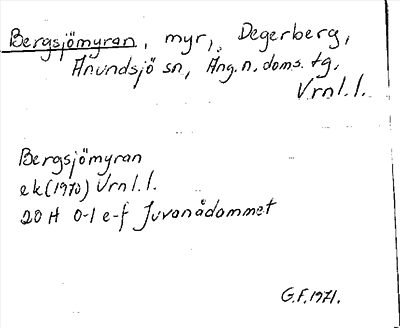 Bergsjömyran, myr, Degerberg,
Anundsjö sn, Ång.n.doms.tg.
Vrnl.l.
Bergsjömyran
ek(1970) Vrnl.l.
20 H 0-1 e-f Juvanådammet
G.F.1971.